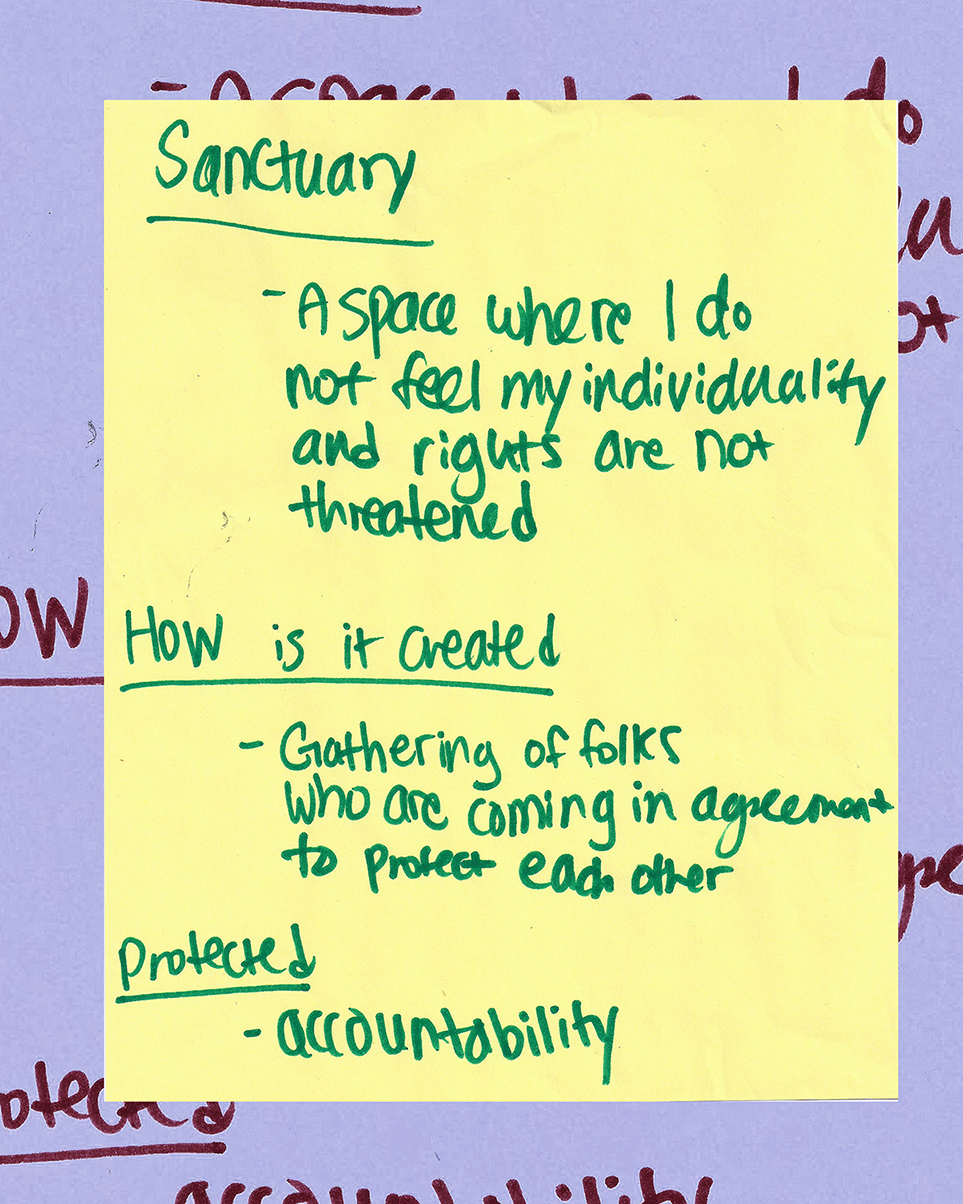 - A space where I do
Sanctuary
- A space where I do
not feel my individuality
and rights are not
threatened
How is it created
- Gathering of folks
who are coming in agreement
to protect each other
Protected
- accountability
otected
accountability